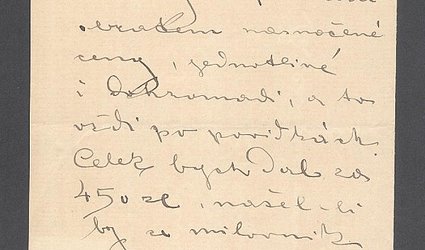 obratem naznačené
ceny, jednotlivé
i dohromady, a to
vždy po povídkách.
Celek bych dal za
450 zl, našel-li
by se milovník